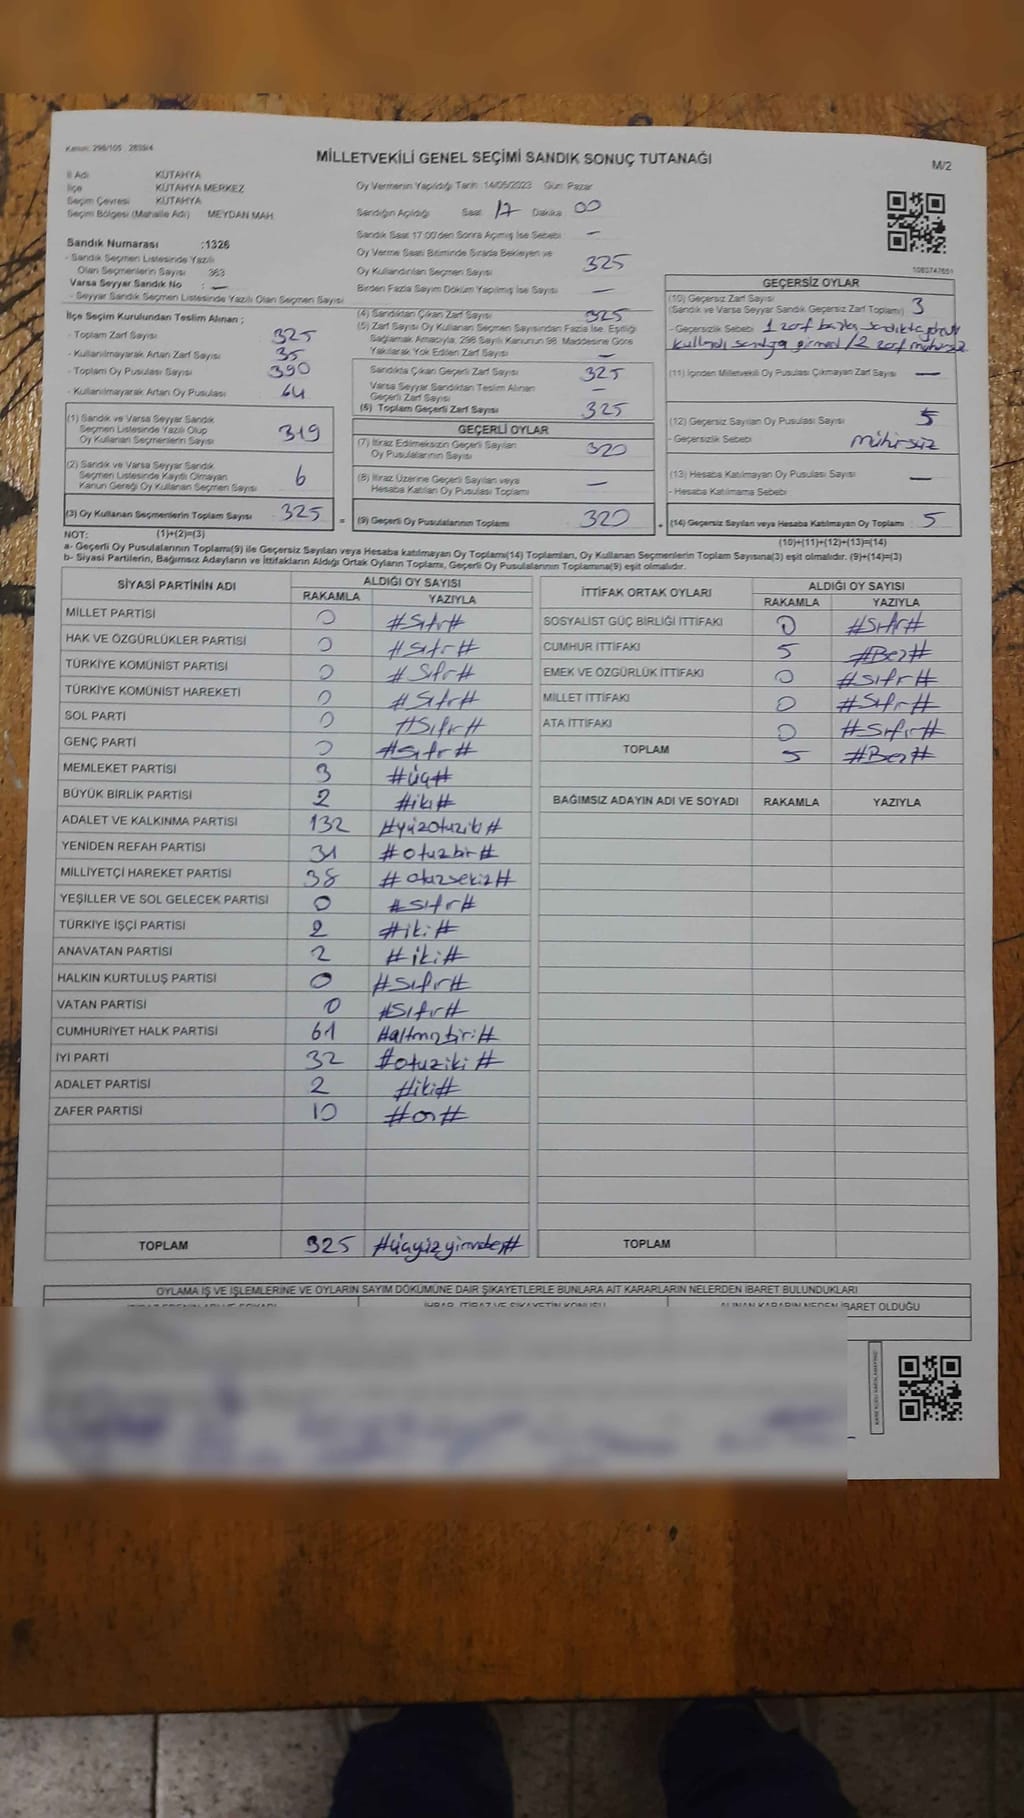 Kanun: 298/105 2839/4
MİLLETVEKİLİ GENEL SEÇİMİ SANDIK SONUÇ TUTANAĞI
M/2
İl Adı KÜTAHYA
İlçe KÜTAHYA MERKEZ
Seçim Çevresi KÜTAHYA
Seçim Bölgesi (Mahalle Adı) MEYDAN MAH.
Sandık Numarası :1326
- Sandık Seçmen Listesinde Yazılı
Olan Seçmenlerin Sayısı 363
Varsa Seyyar Sandık No : —
- Seyyar Sandık Seçmen Listesinde Yazılı Olan Seçmen Sayısı
Oy Vermenin Yapıldığı Tarih :14/05/2023 Gün: Pazar
Sandığın Açıldığı Saat 17 Dakika 00
Sandık Saat 17:00'den Sonra Açılmış İse Sebebi —
Oy Verme Saati Bitiminde Sırada Bekleyen ve
Oy Kullandırılan Seçmen Sayısı 325
Birden Fazla Sayım Döküm Yapılmış İse Sayısı —
1083747651
İlçe Seçim Kurulundan Teslim Alınan ;
- Toplam Zarf Sayısı 325
- Kullanılmayarak Artan Zarf Sayısı 35
- Toplam Oy Pusulası Sayısı 390
- Kullanılmayarak Artan Oy Pusulası 64
(1) Sandık ve Varsa Seyyar Sandık
Seçmen Listesinde Yazılı Olup
Oy Kullanan Seçmenlerin Sayısı 319
(2) Sandık ve Varsa Seyyar Sandık
Seçmen Listesinde Kayıtlı Olmayan
Kanun Gereği Oy Kullanan Seçmen Sayısı 6
(3) Oy Kullanan Seçmenlerin Toplam Sayısı 325 =
(1)+(2)=(3)
(4) Sandıktan Çıkan Zarf Sayısı 325
(5) Zarf Sayısı Oy Kullanan Seçmen Sayısından Fazla İse, Eşitliği
Sağlamak Amacıyla, 298 Sayılı Kanunun 98. Maddesine Göre
Yakılarak Yok Edilen Zarf Sayısı —
Sandıkta Çıkan Geçerli Zarf Sayısı 325
Varsa Seyyar Sandıktan Teslim Alınan
Geçerli Zarf Sayısı —
(6) Toplam Geçerli Zarf Sayısı 325
GEÇERLİ OYLAR
(7) İtiraz Edilmeksizin Geçerli Sayılan
Oy Pusulalarının Sayısı 320
(8) İtiraz Üzerine Geçerli Sayılan veya
Hesaba Katılan Oy Pusulası Toplamı —
(9) Geçerli Oy Pusulalarının Toplamı 320 +
GEÇERSİZ OYLAR
(10) Geçersiz Zarf Sayısı 3
(Sandık ve Varsa Seyyar Sandık Geçersiz Zarf Toplamı)
- Geçersizlik Sebebi 1 zarf başka sandıkta
sandığa girmedi / 2 zarf mühürsüz
(11) İçinden Milletvekili Oy Pusulası Çıkmayan Zarf Sayısı —
(12) Geçersiz Sayılan Oy Pusulası Sayısı 5
- Geçersizlik Sebebi mühürsüz
(13) Hesaba Katılmayan Oy Pusulası Sayısı —
- Hesaba Katılmama Sebebi
(14) Geçersiz Sayılan veya Hesaba Katılmayan Oy Toplamı 5
(10)+(11)+(12)+(13)=(14)
NOT:
a- Geçerli Oy Pusulalarının Toplamı(9) ile Geçersiz Sayılan veya Hesaba katılmayan Oy Toplamı(14) Toplamları, Oy Kullanan Seçmenlerin Toplam Sayısına(3) eşit olmalıdır. (9)+(14)=(3)
b- Siyasi Partilerin, Bağımsız Adayların ve İttifakların Aldığı Ortak Oyların Toplamı, Geçerli Oy Pusulalarının Toplamına(9) eşit olmalıdır.
SİYASİ PARTİNİN ADI ALDIĞI OY SAYISI
RAKAMLA YAZIYLA
MİLLET PARTİSİ 0 #Sıfır#
HAK VE ÖZGÜRLÜKLER PARTİSİ 0 #Sıfır#
TÜRKİYE KOMÜNİST PARTİSİ 0 #Sıfır#
TÜRKİYE KOMÜNİST HAREKETİ 0 #Sıfır#
SOL PARTİ 0 #Sıfır#
GENÇ PARTİ 0 #Sıfır#
MEMLEKET PARTİSİ 3 #üç#
BÜYÜK BİRLİK PARTİSİ 2 #iki#
ADALET VE KALKINMA PARTİSİ 132 #yüzotuziki#
YENİDEN REFAH PARTİSİ 31 #otuzbir#
MİLLİYETÇİ HAREKET PARTİSİ 38 #otuzsekiz#
YEŞİLLER VE SOL GELECEK PARTİSİ 0 #sıfır#
TÜRKİYE İŞÇİ PARTİSİ 2 #iki#
ANAVATAN PARTİSİ 2 #iki#
HALKIN KURTULUŞ PARTİSİ 0 #Sıfır#
VATAN PARTİSİ 0 #Sıfır#
CUMHURİYET HALK PARTİSİ 61 #altmışbir#
İYİ PARTİ 32 #otuziki#
ADALET PARTİSİ 2 #iki#
ZAFER PARTİSİ 10 #on#
TOPLAM 325 #üçyüzyirmibeş#
İTTİFAK ORTAK OYLARI ALDIĞI OY SAYISI
RAKAMLA YAZIYLA
SOSYALİST GÜÇ BİRLİĞİ İTTİFAKI 0 #Sıfır#
CUMHUR İTTİFAKI 5 #Beş#
EMEK VE ÖZGÜRLÜK İTTİFAKI 0 #Sıfır#
MİLLET İTTİFAKI 0 #Sıfır#
ATA İTTİFAKI 0 #Sıfır#
TOPLAM 5 #Beş#
BAĞIMSIZ ADAYIN ADI VE SOYADI RAKAMLA YAZIYLA
TOPLAM
OYLAMA İŞ VE İŞLEMLERİNE VE OYLARIN SAYIM DÖKÜMÜNE DAİR ŞİKAYETLERLE BUNLARA AİT KARARLARIN NELERDEN İBARET BULUNDUKLARI
İTİRAZ EDENİN ADI VE SOYADI İHBAR, İTİRAZ VE ŞİKAYETİN KONUSU ALINAN KARARIN NEDEN İBARET OLDUĞU